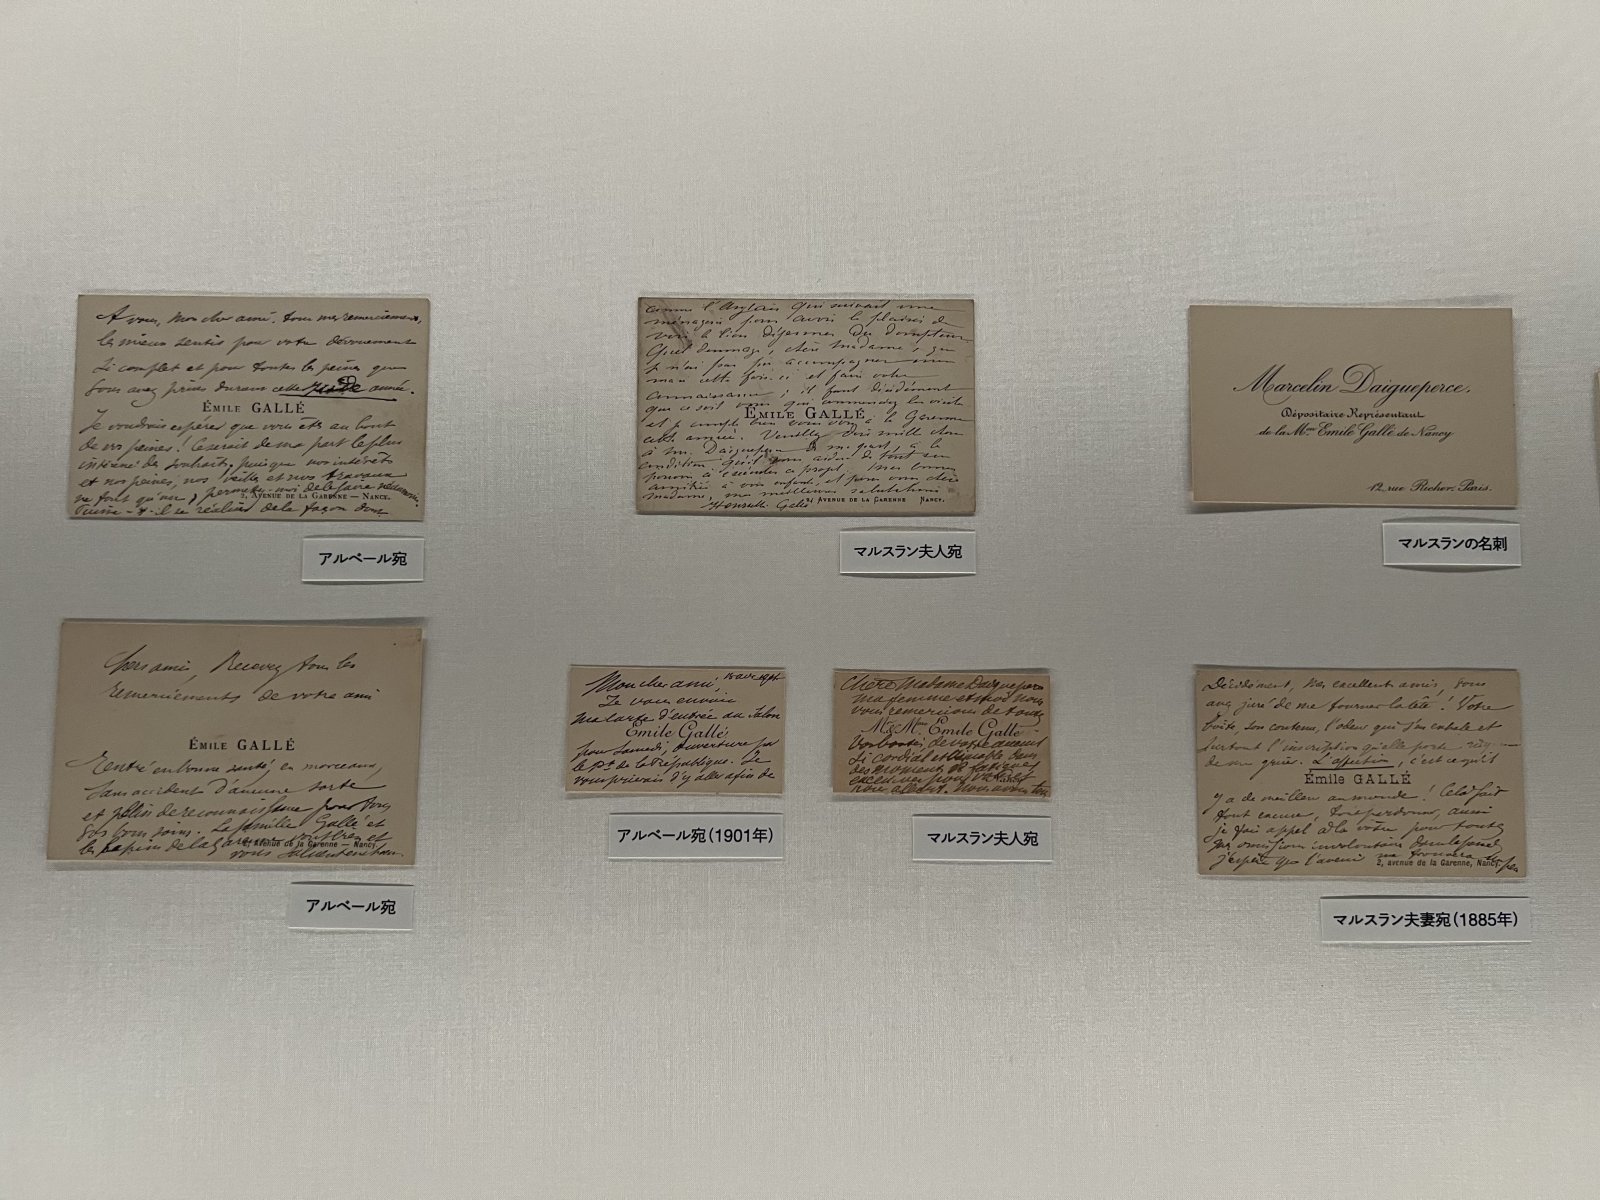 A vous, Mon cher ami, tous mes remerciements,
les mieux sentis pour votre dévouement
si complet et pour toutes les peines que
vous avez prises durant cette année.
ÉMILE GALLÉ
Je voudrais espérer que vous êtes au bout
de vos peines! Ce serait de ma part le plus
intéressé des souhaits, puisque nos intérêts
et nos peines, nos veilles et nos travaux
ne font qu'un, permettez-moi de le faire
2, AVENUE DE LA GARENNE — NANCY.
il se réalise de la façon dont
アルベール宛
comme l'Anglais qui suivait une
ménagerie pour avoir le plaisir de
voir le lion digérer du dompteur.
Quel dommage, chère madame, que
je n'ai pas pu accompagner mon
mari cette fois-ci et faire votre
connaissance, il faut décidément
que ce soit vous qui commenciez la visite
ÉMILE GALLÉ
et je compte bien vous voir à la Garenne
cette année. Veuillez dire mille choses
à M. Daigueperce de ma part, à la
condition qu'il
amitiés à vos enfants, et pour vous chère
madame, mes meilleures salutations
2, AVENUE DE LA GARENNE NANCY.
Henriette Gallé
マルスラン夫人宛
Marcelin Daigueperce.
Dépositaire Représentant
de la Mon Emile Gallé de Nancy
12, rue Richer. Paris.
マルスランの名刺
Chers amis, Recevez tous les
remerciements de votre ami
ÉMILE GALLÉ
Rentré en bonne santé, en morceaux,
sans accident d'aucune sorte
et plein de reconnaissance pour vous
vos bons soins. La famille Gallé et
les lapins de la Garenne
2, Avenue de la Garenne — Nancy.
vous
アルベール宛
Mon cher ami,
Je vous envoie
ma carte d'entrée au Salon
Emile Gallé
pour samedi, ouverture par
le Pt de la République. Je
vous prierais d'y aller afin de
アルベール宛(1901年)
Chère Madame Daigueperce
ma femme et moi nous
vous remercions de toutes
M. & Mme Emile Gallé
vos bontés, de votre accueil
si cordial et
マルスラン夫人宛
Décidément, mes excellents amis, vous
avez juré de me tourner la tête! Votre
boîte, son contenu, l'odeur qui s'en exhale et
surtout l'inscription qu'elle porte
L'affection, c'est ce qu'il
Émile GALLÉ
y a de meilleur au monde! Cela fait
tout pardonner, aussi
je fais appel à la vôtre pour toutes
les omissions involontaires
j'espère que l'avenir me trouvera
2, avenue de la Garenne, Nancy.
マルスラン夫妻宛(1885年)